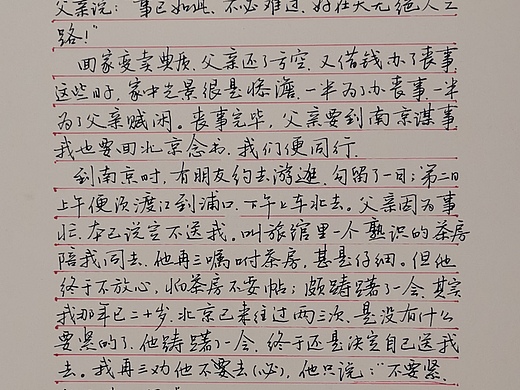 父亲说:“事已如此,不必难过,好在天无绝人之
路!”
回家变卖典质,父亲还了亏空,又借钱办了丧事,
这些日子,家中光景很是惨澹,一半为了办丧事,一半
为了父亲赋闲。丧事完毕,父亲要到南京谋事,
我也要回北京念书,我们便同行。
到南京时,有朋友约去游逛,勾留了一日;第二日
上午便须渡江到浦口,下午上车北去。父亲因为事
忙,本已说定不送我,叫旅馆里一个熟识的茶房
陪我同去。他再三嘱咐茶房,甚是仔细。但他
终于不放心,怕茶房不妥帖;颇踌躇了一会。其实
我那年已二十岁,北京已来往过两三次,是没有什么
要紧的了。他踌躇了一会,终于还是决定自己送我
去。我再三劝他不要去(必),他只说:“不要紧,